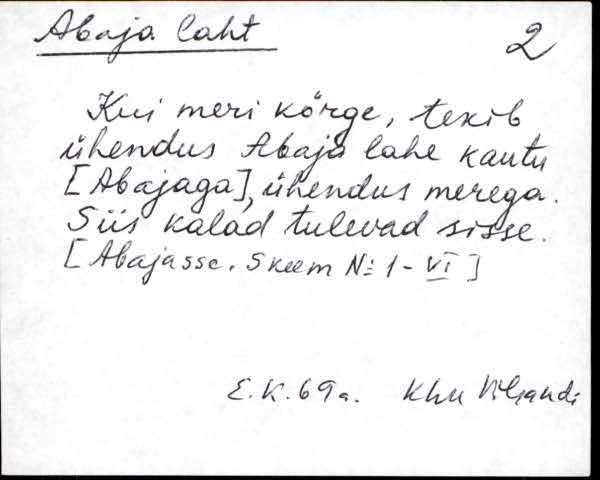 Abaja laht
2
Kui meri kõrge, tekib
ühendus Abaja lahe kautu
[Abajaga], ühendus merega.
Siis kalad tulevad sisse.
[Abajasse. Skeem No 1 - VI]
E.K. 69a. Khn